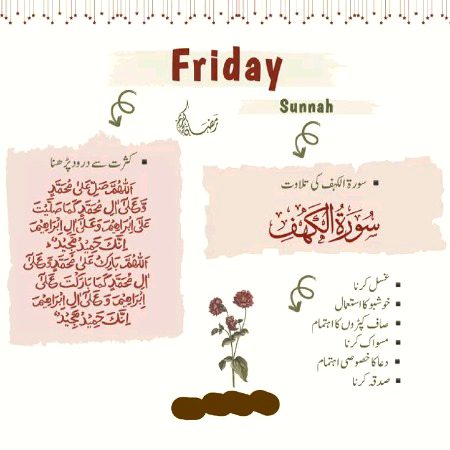 Friday
Sunnah
رمضان کریم
کثرت سے درود پڑھنا
اللهم صل على محمد
وعلى ال محمد كما صليت
على ابراهيم وعلى ال ابراهيم
انك حميد مجيد
اللهم بارك على محمد وعلى
ال محمد كما باركت على
ابراهيم وعلى ال ابراهيم
انك حميد مجيد
سورۃ الکہف کی تلاوت
سُورَةُ الْكَهْفِ
غسل کرنا
خوشبو کا استعمال
صاف کپڑوں کا اہتمام
مسواک کرنا
دعا کا خصوصی اہتمام
صدقہ کرنا